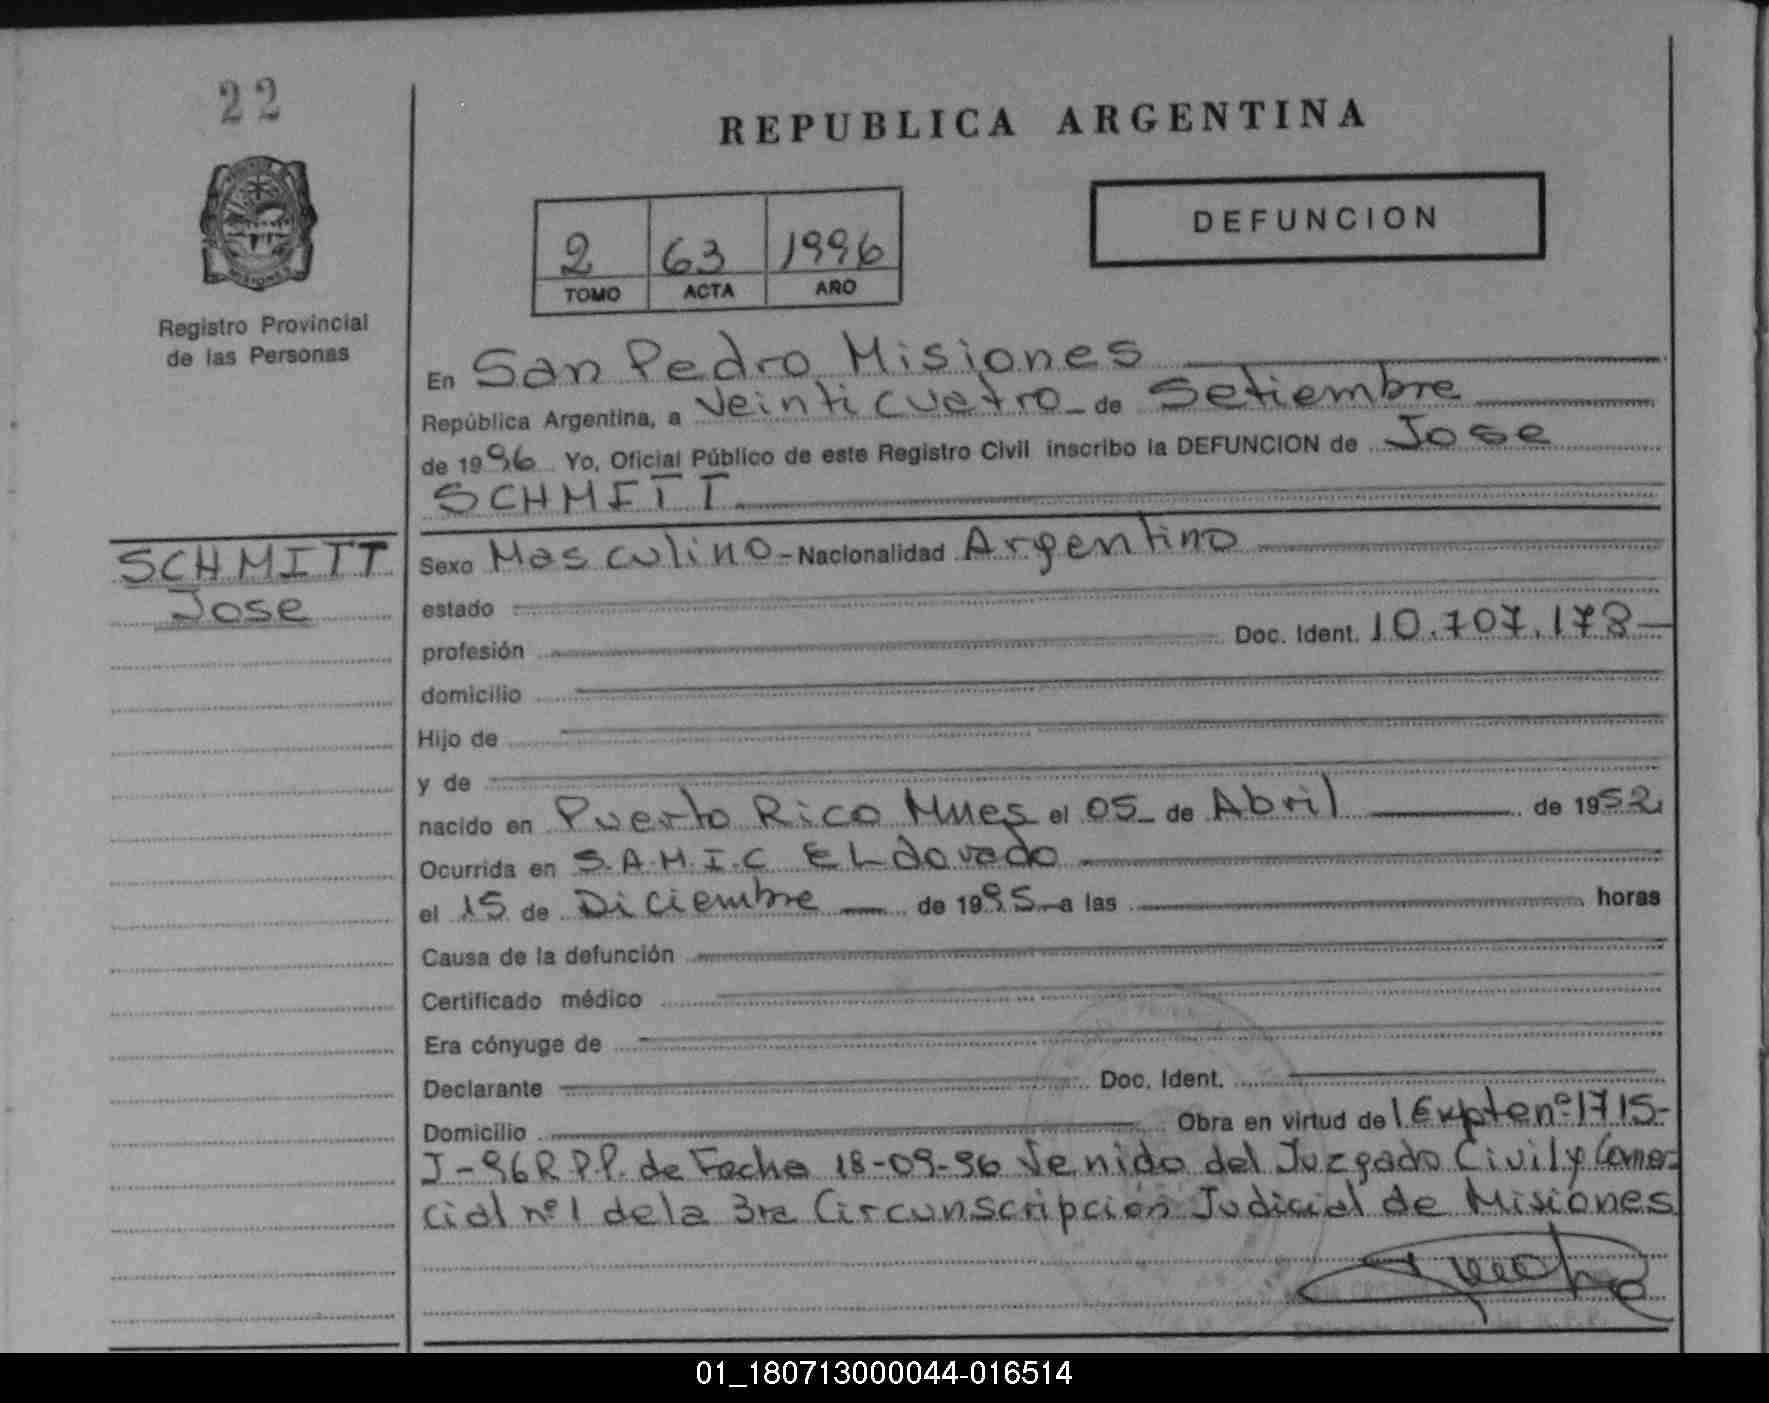 22
REPUBLICA ARGENTINA
DEFUNCION
2 63 1996
TOMO ACTA AÑO
Registro Provincial
de las Personas
En San Pedro Misiones
República Argentina, a Veinticuatro de Setiembre
de 1996 Yo, Oficial Público de este Registro Civil inscribo la DEFUNCION de Jose
SCHMITT
SCHMITT
Jose
Sexo Masculino - Nacionalidad Argentino
estado
profesión Doc. Ident. 10.707.178
domicilio
Hijo de
y de
nacido en Puerto Rico Mnes el 05 de Abril de 1952
Ocurrida en S.A.M.I.C ELdorado
el 15 de Diciembre de 1995 a las horas
Causa de la defunción
Certificado médico
Era cónyuge de
Declarante Doc. Ident.
Domicilio Obra en virtud del Expte nº 1715-
J-96 R.P.P. de Fecha 18-09-96 Venido del Juzgado Civil y Comer-
cial nº 1 de la 3ra Circunscripción Judicial de Misiones
01_180713000044-016514